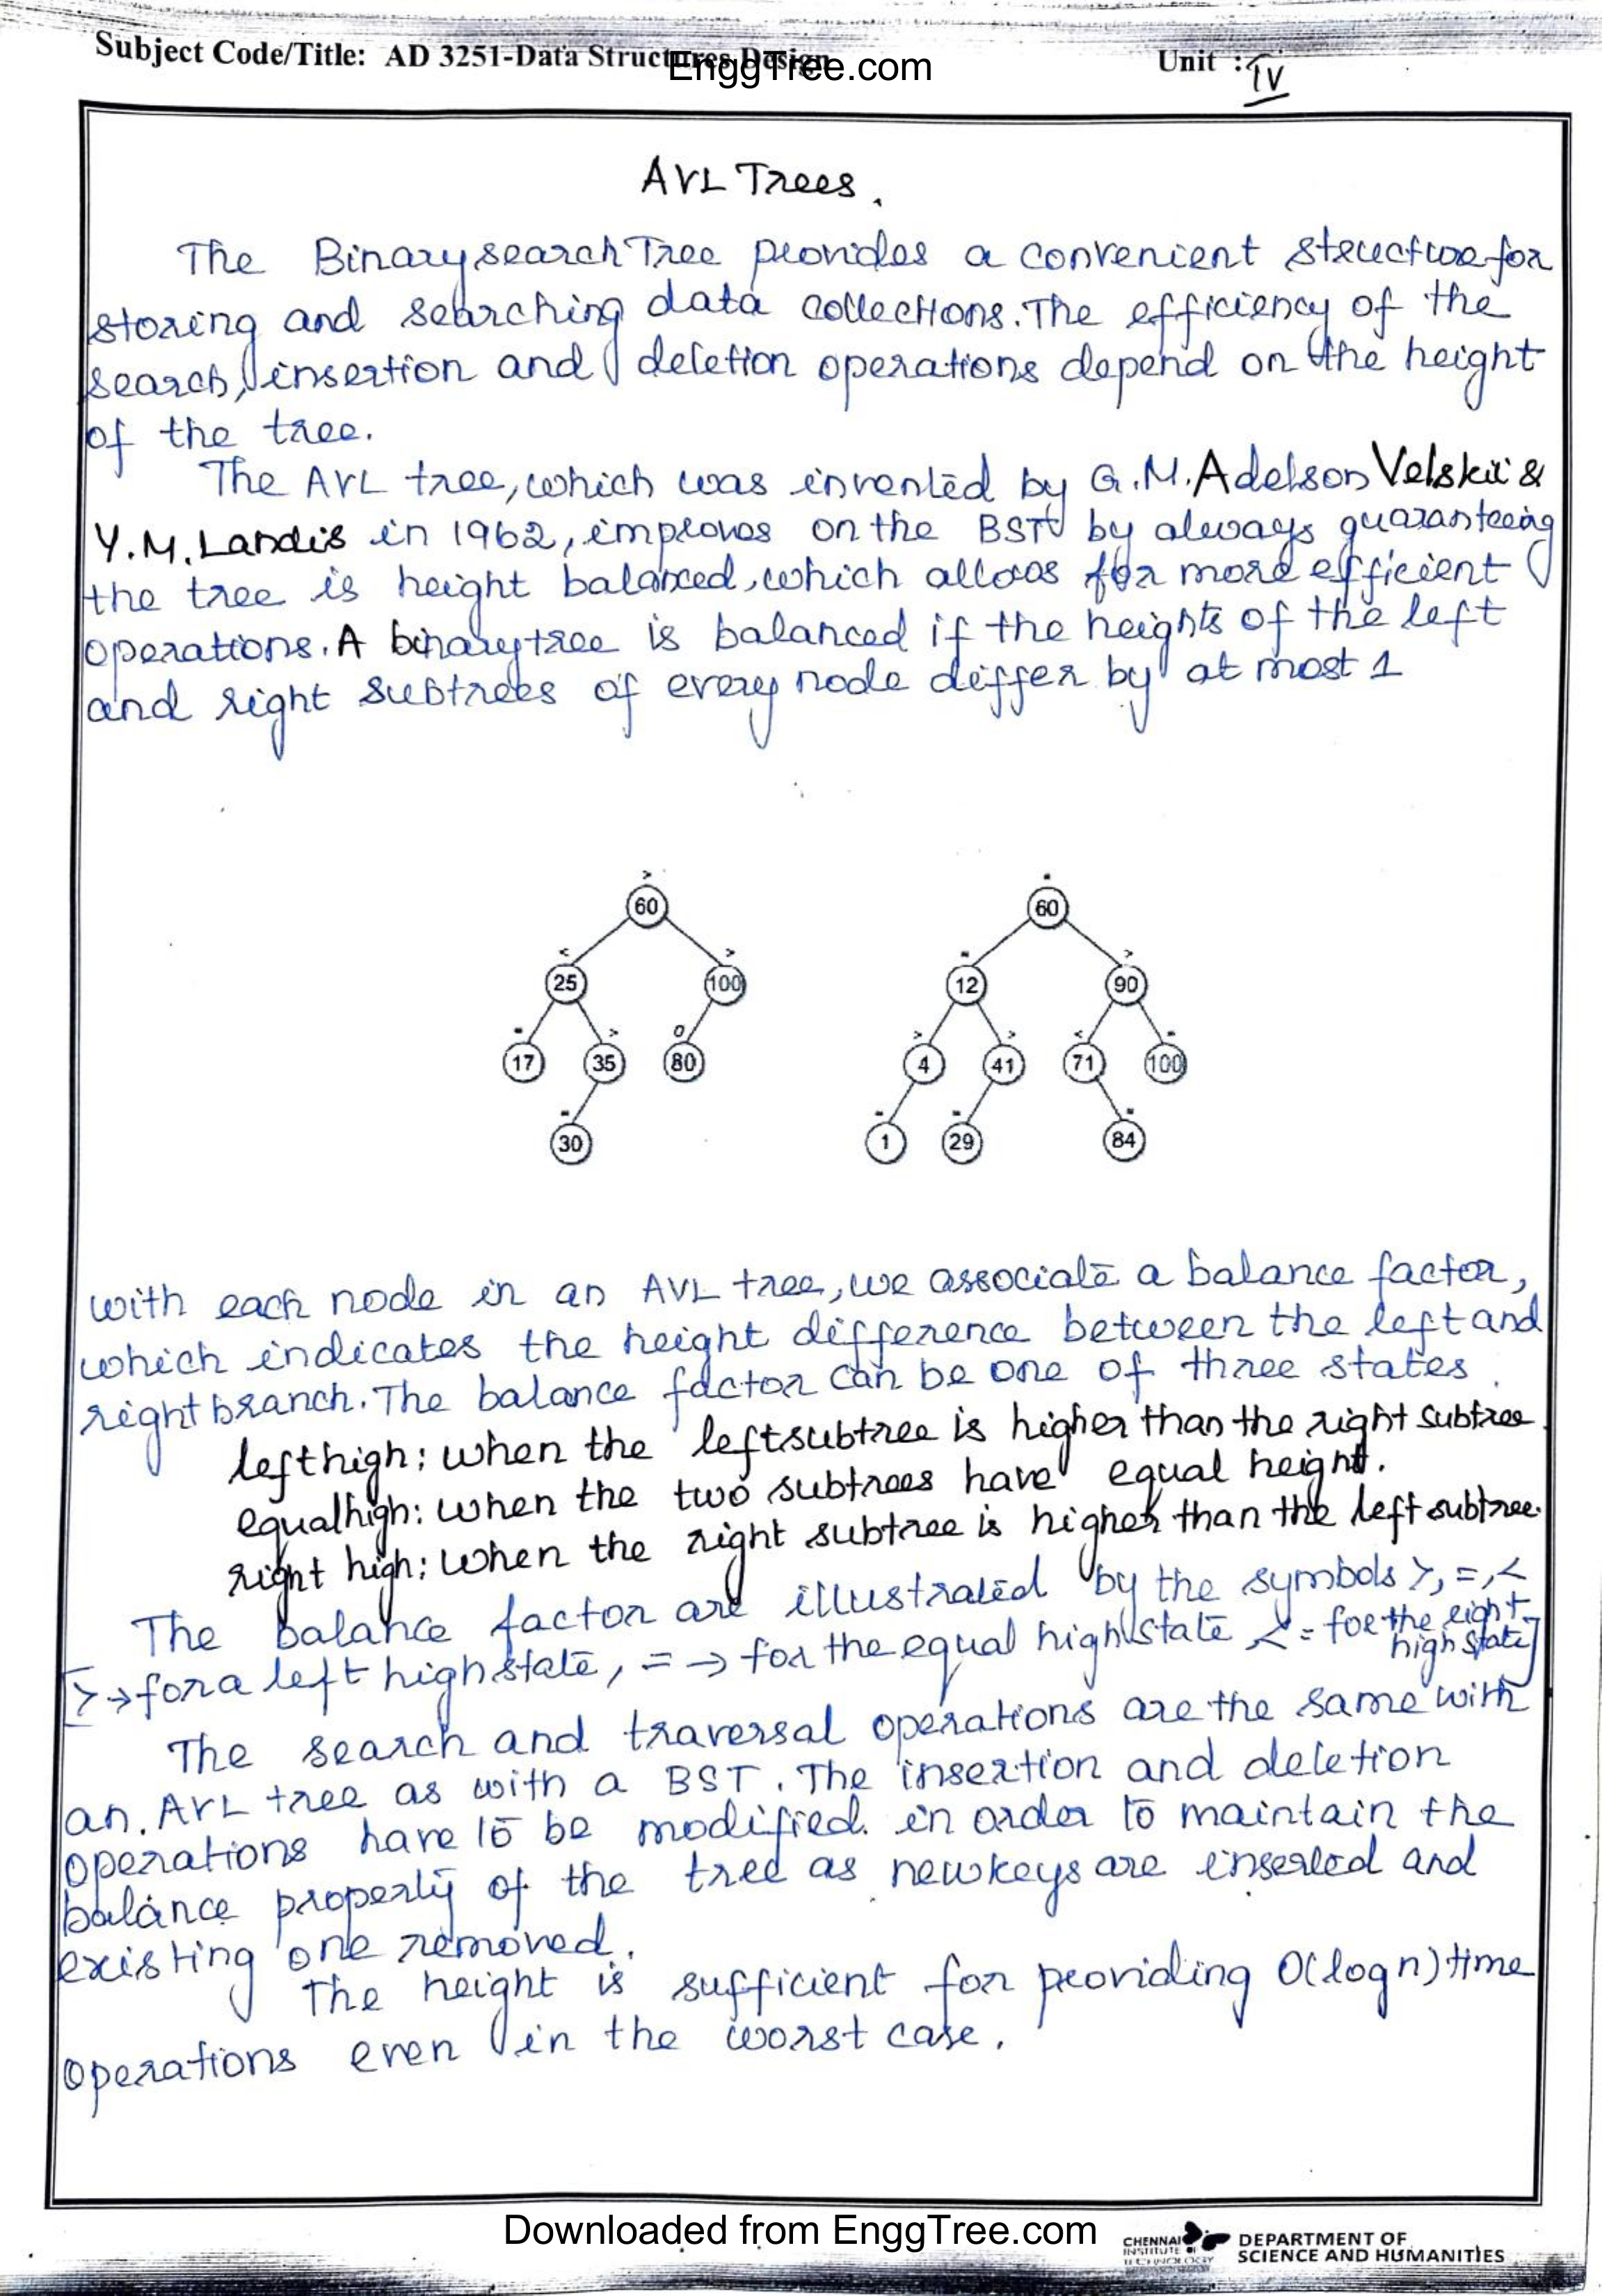 Subject Code/Title: AD 3251-Data Structures Design
EnggTree.com
Unit : IV
AVL Trees.
The Binary search Tree provides a convenient structure for
storing and searching data collections. The efficiency of the
search, insertion and deletion operations depend on the height
of the tree.
The AVL tree, which was invented by G.M. Adelson Velskii &
Y.M. Landis in 1962, improves on the BST by always guaranteeing
the tree is height balanced, which allows for more efficient
operations. A binary tree is balanced if the heights of the left
and right subtrees of every node differ by at most 1
> 60
< 25 > 100
- 17 > 35 0 80
- 30
60
12 > 90
> 4 > 41 < 71 - 100
- 1 - 29 - 84
with each node in an AVL tree, we associate a balance factor,
which indicates the height difference between the left and
right branch. The balance factor can be one of three states.
left high: when the left subtree is higher than the right subtree
equal high: when the two subtrees have equal height.
right high: when the right subtree is higher than the left subtree.
The balance factor are illustrated by the symbols >, =, <
[> → for a left high state, = → for the equal high state < = for the right
high state]
The search and traversal operations are the same with
an. AVL tree as with a BST. The insertion and deletion
operations have to be modified. in order to maintain the
balance property of the tree as new keys are inserted and
existing one removed.
The height is sufficient for providing O(log n) time
operations even in the worst case.
Downloaded from EnggTree.com
CHENNAI
INSTITUTE OF
TECHNOLOGY
DEPARTMENT OF
SCIENCE AND HUMANITIES